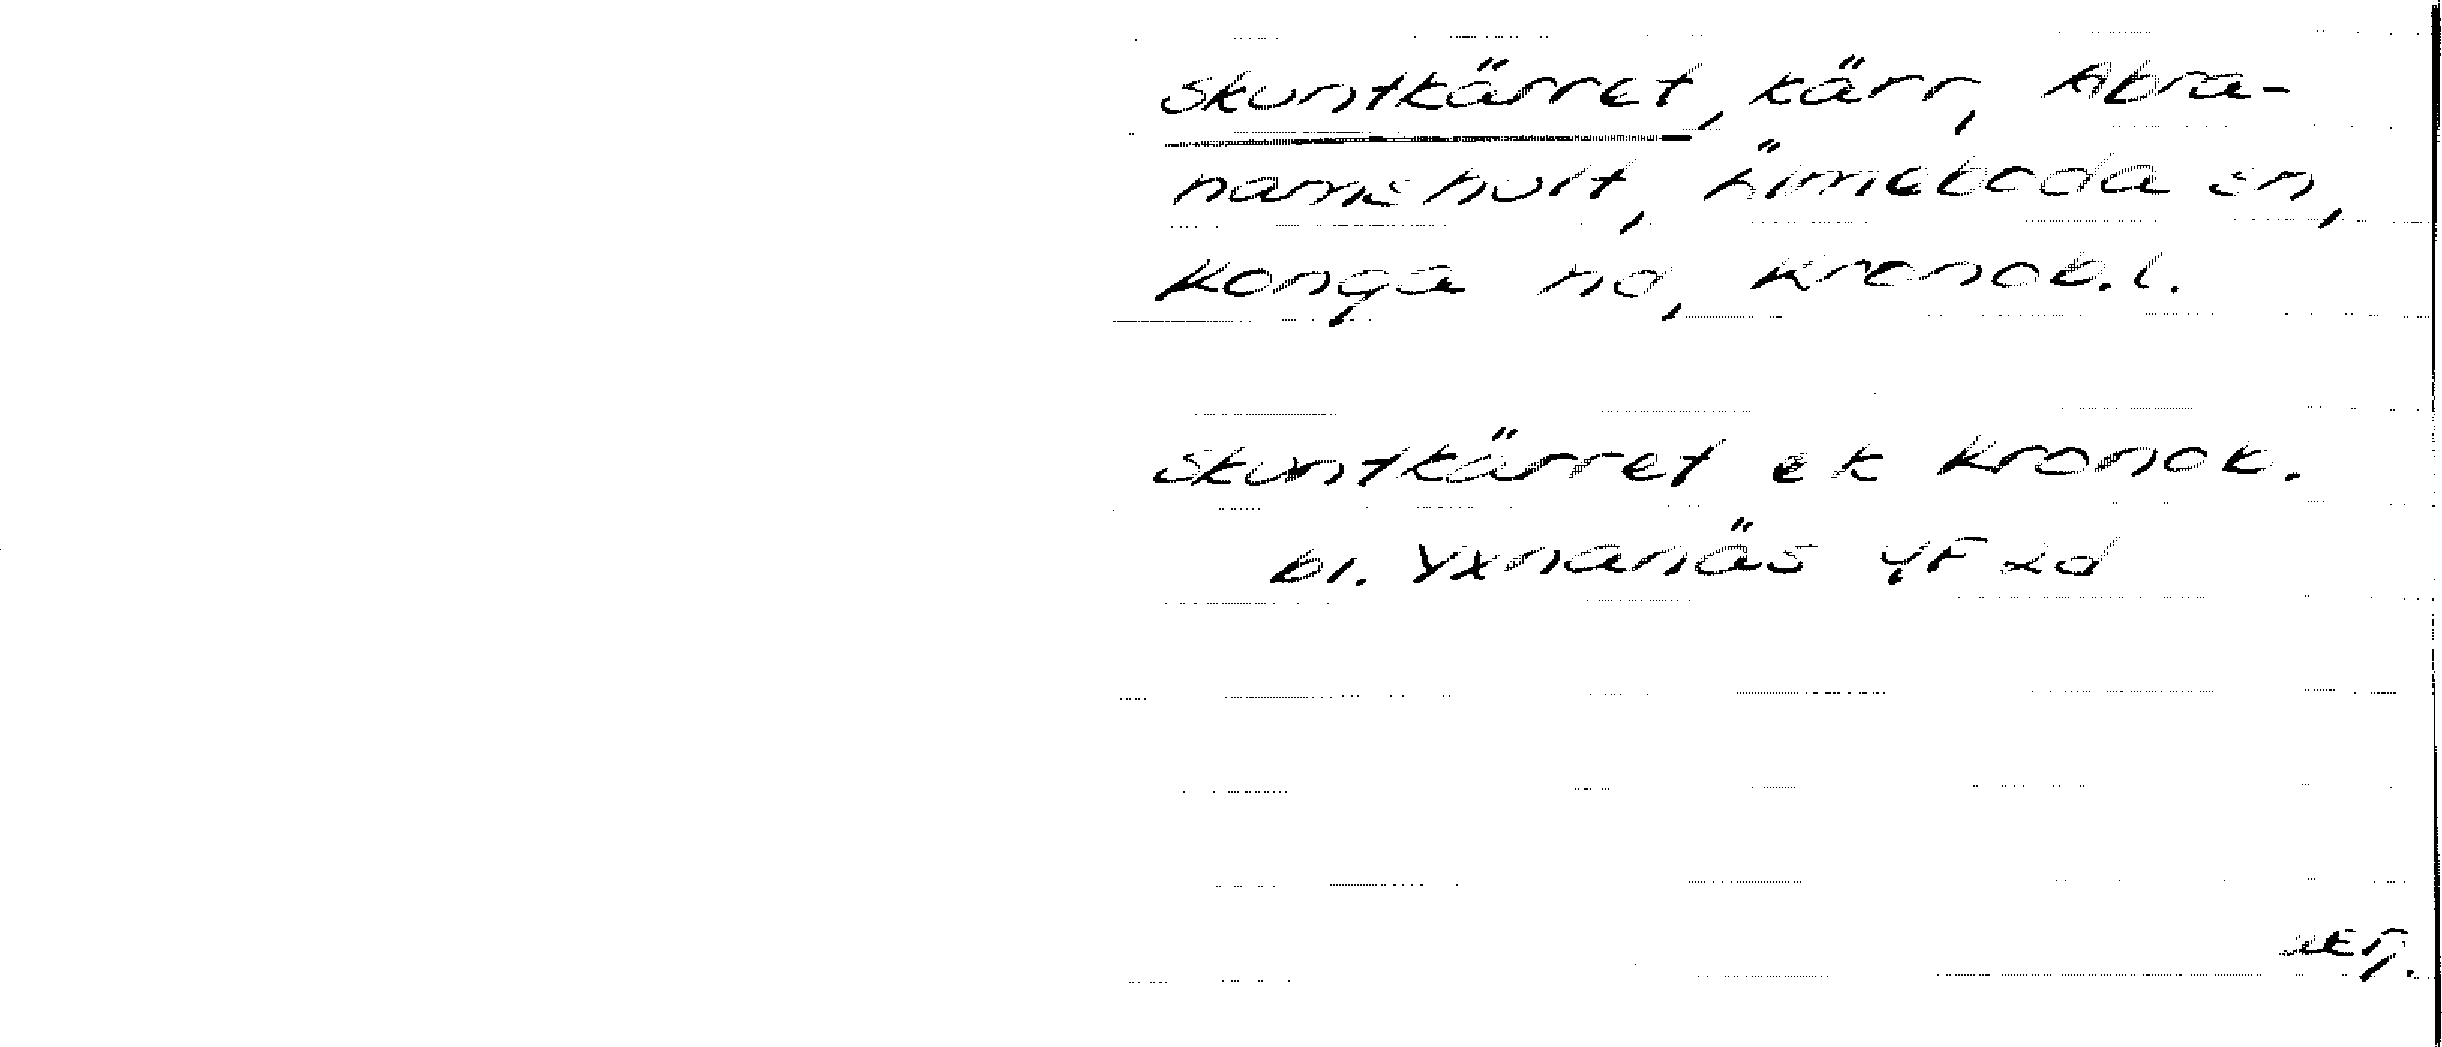 Skuntkärret, kärr, Abra-
hamshult, Älmeboda sn,
Konga hd, Kronob.l.
Skuntkärret ek Kronob.
bl. Yxnanäs 4F 2d